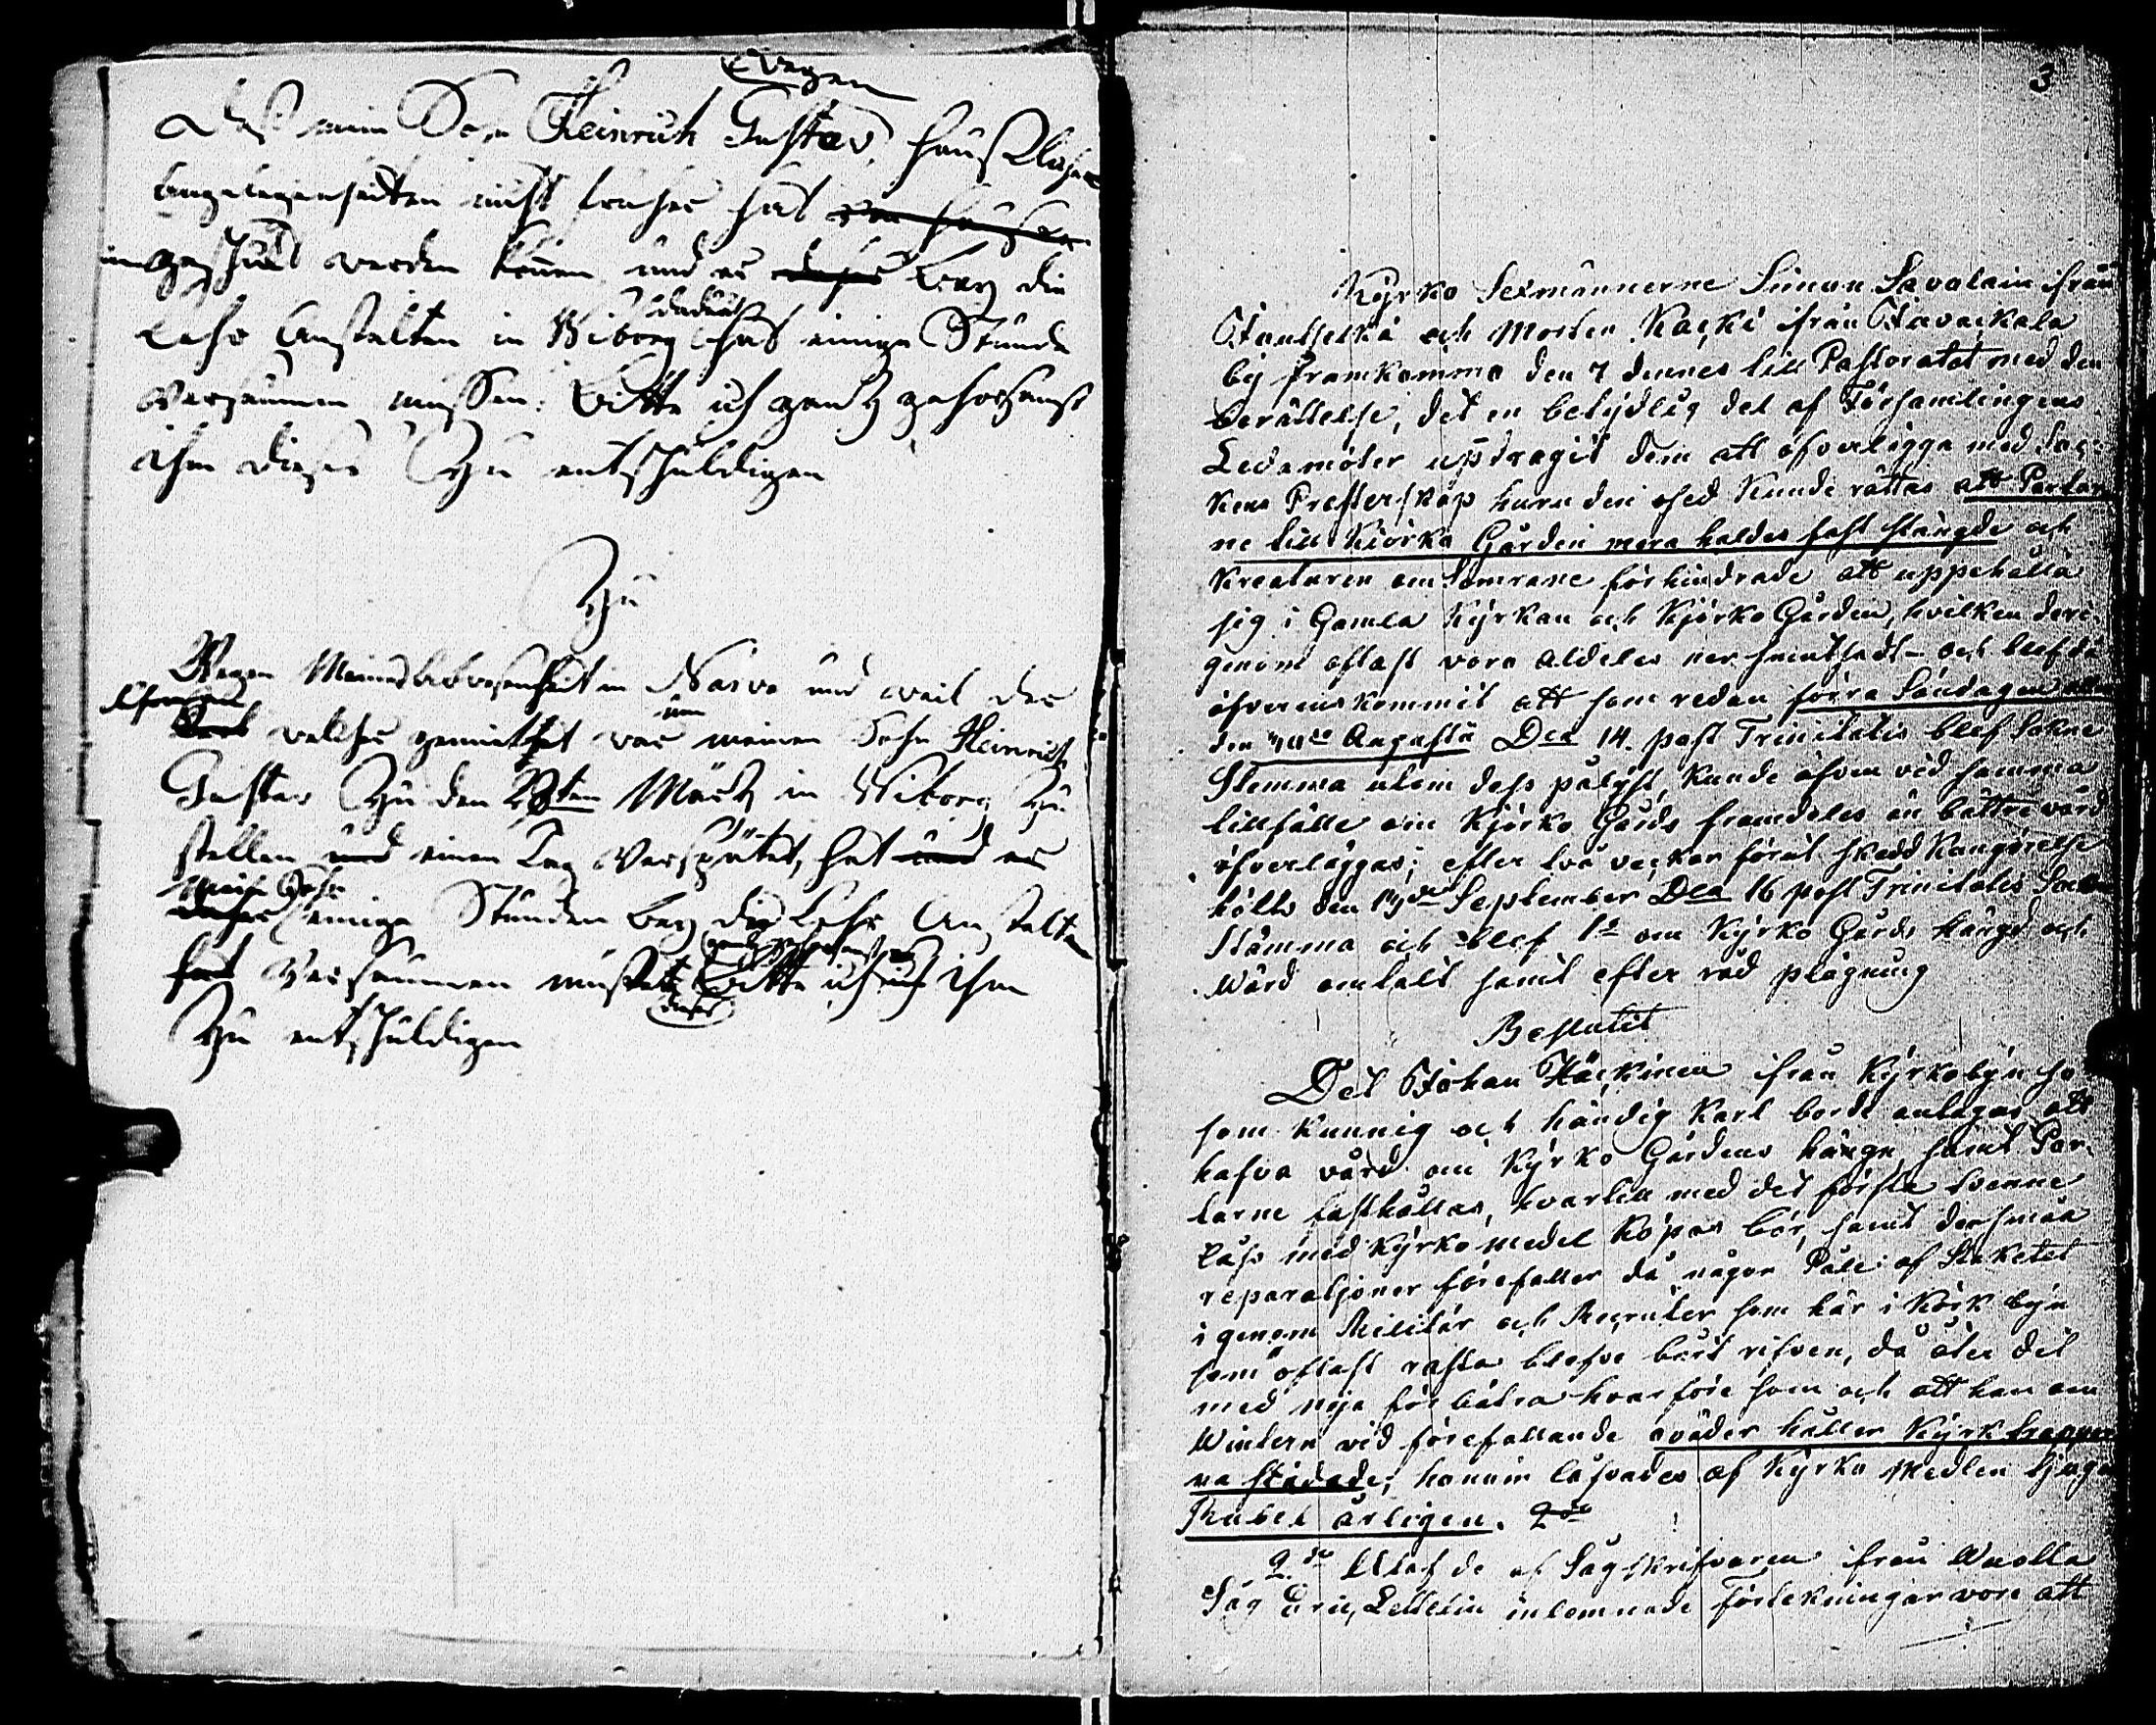 wegen
Daß mein Sohn Heinrich Gustav, Haußlicher
Angelegenheiten nicht fruher hat
geschückt werden können und er daher bey die
dadurch
Lehr Anstalten in Wiborg hat einige Stunde
versaumen müssen: Bitte ich gantz gehorsamst
ihm dieses Zu entschuldigen
Zu
Wegen Meines Abwesenheit in Narva und weil der
welcher gemiethet war meinen Sohn Heinrich
um
Gustav Zu den 28ten Märtz in Wiborg Zu
stellen und einen Tag verspätet, hat und er
Mein Sohn
daher einige Stunden bey die Lehr Anstalten
gantz gehorsamst
hat versaumen müssen Bitte ich ihm
dieses
Zu entschuldigen
3
Kyrko Sexmännerne Simon Savolain ifrån
och Morten Kacki ifrån Tavaikala
by framkommo den 7 dennes till Pastoratet med den
berättelse, det en betydlig del af Församlingens
Ledamöter updragit dem att öfverligga med Sac-
kens Presterskap huru den osed kunde rättas att Portar
ne till Kiörko Gården mera haldes fast stängde och
Kreaturen om Somrarne förhindrade att uppehålla
sig i Gamla Kyrkan och Kjörko Gården, hvilken deri-
genom oftast voro aldeles ner smutsadt - och blef då
öfverenskommit att som redan förra Söndagen
den Augusti Dca 14. post Trinitatis blef Sokne
Stemma utom dess pålyst, kunde äfven vid samma
tillfälle om Kjörko Gårds framdeles än bättre vård
öfverläggas; efter två veckor förut skedd Kungörelse
hölts den September Dca 16 post Trinitatis Sockne
Stämma och blef 1o om Kyrko Gårds hängd och
Wård omtalt samt efter råd plägning
Beslutit
Det Johan Häckinen ifrån Kyrkobyn
som kunnig och händig Karl borde antagas att
hafva vård om Kyrko Gårdens hängn samt Por-
tarne fasthållas, hvartill med det första tvenne
lås med Kyrko medel köpas bör, samt der smäa
reparatjoner förefaller då någon Påle af Staketet
igenom Militär och Recruter som här i Körk byn
som oftast rasta blefve bort rifven, då åter det
med nya förbättra hvarföre som och att han om
Wintern vid förefallande oväder håller Kyrk trappor
na städade; honom låfvades af Kyrko Medlen tjugu
Rubel årligen. 2do
2do Blef de af Sågskrifvaren ifrån Wuolla
Såg Bru, Lellelin inlemnade Förtekningar vore att